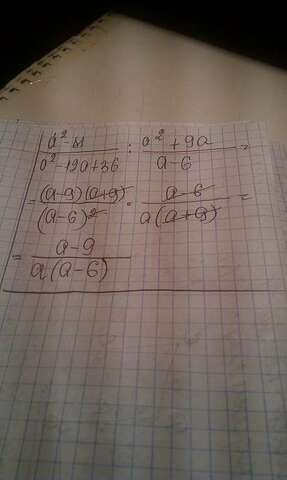 a²-81/a²-12a+36 : a²+9a/a-6 =
= (a-9)(a+9)/(a-6)² · a-6/a(a+9) =
= a-9/a(a-6)